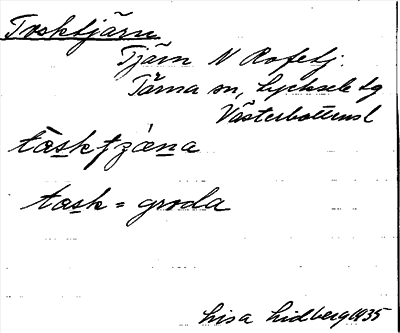 Trsktjärn
Tjärn N Rofetj.
Tärna sn, Lycksele lg
Västerbottens l
tasktjæna
task = groda
Lisa Lidberg 1935